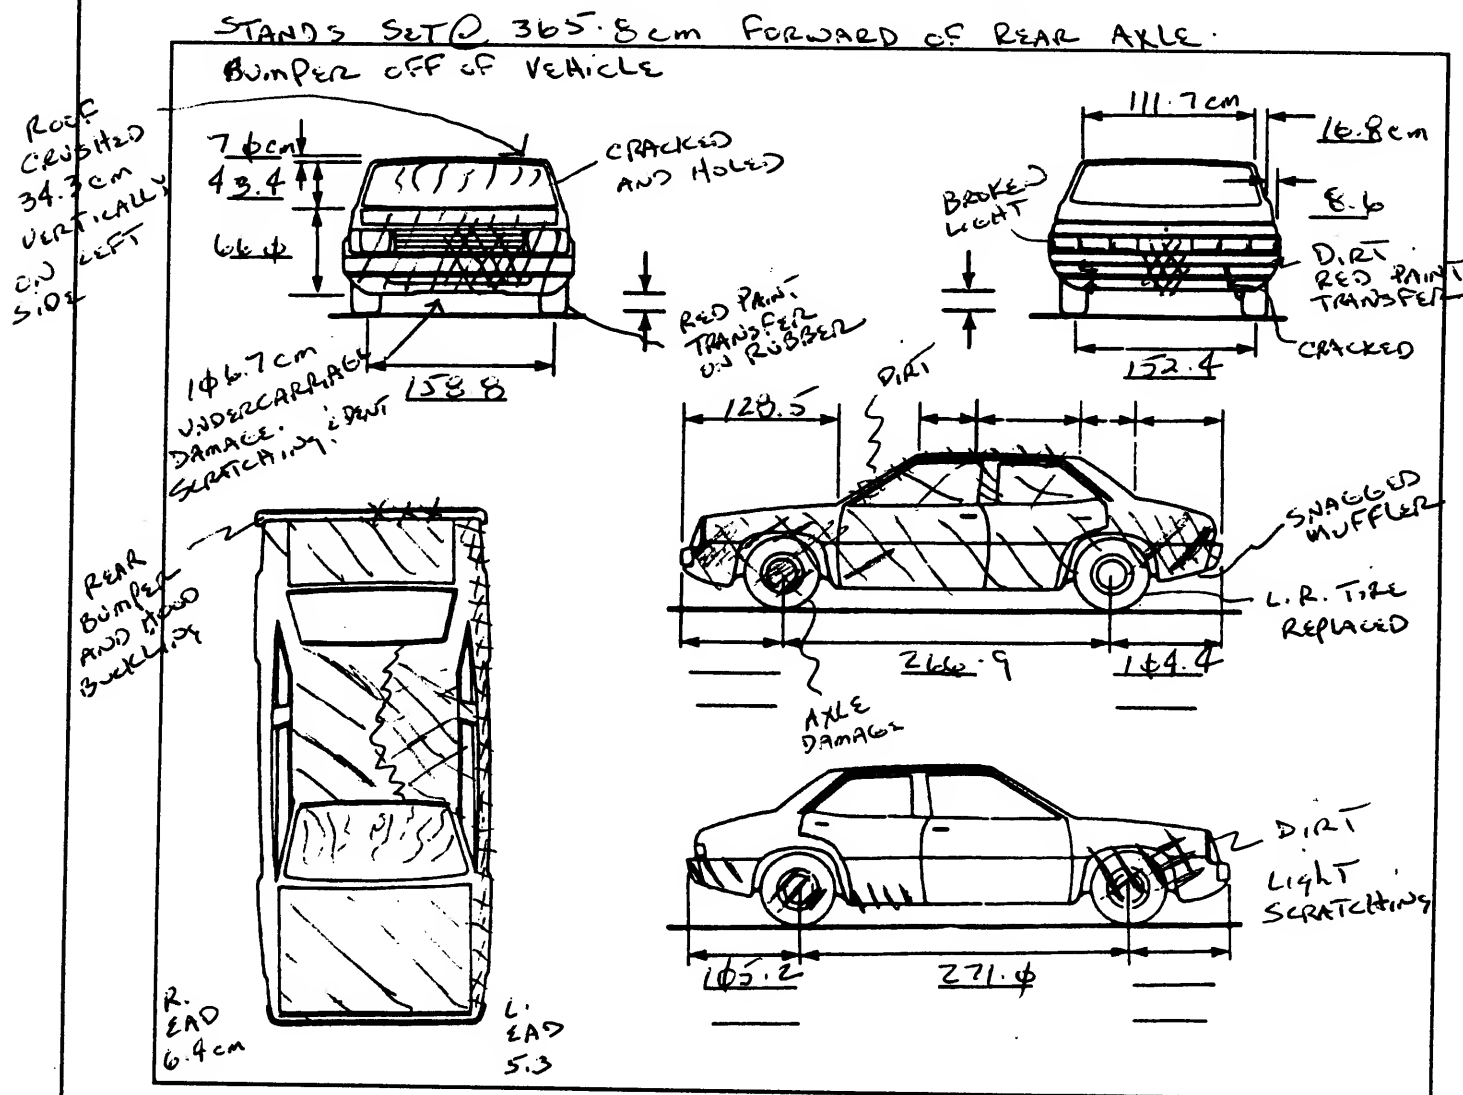 STANDS SET @ 365.8cm FORWARD OF REAR AXLE.
BUMPER OFF OF VEHICLE
ROOF
CRUSHED
34.3cm
VERTICALLY
ON LEFT
SIDE
7.0cm
43.4
66.0
CRACKED
AND HOLED
RED PAINT
TRANSFER
ON RUBBER
158.8
106.7cm
UNDERCARRIAGE
DAMAGE.
SCRATCHING, & DENT
111.7cm
16.8cm
8.6
BROKEN
LIGHT
DIRT
RED PAINT
TRANSFER
CRACKED
152.4
128.5
DIRT
SNAGGED
MUFFLER
L.R. TIRE
REPLACED
266.9
104.4
AXLE
DAMAGE
REAR
BUMPER
AND HOOD
BUCKLING
DIRT
LIGHT
SCRATCHING
105.2
271.0
R.
EAD
6.4cm
L.
EAD
5.3